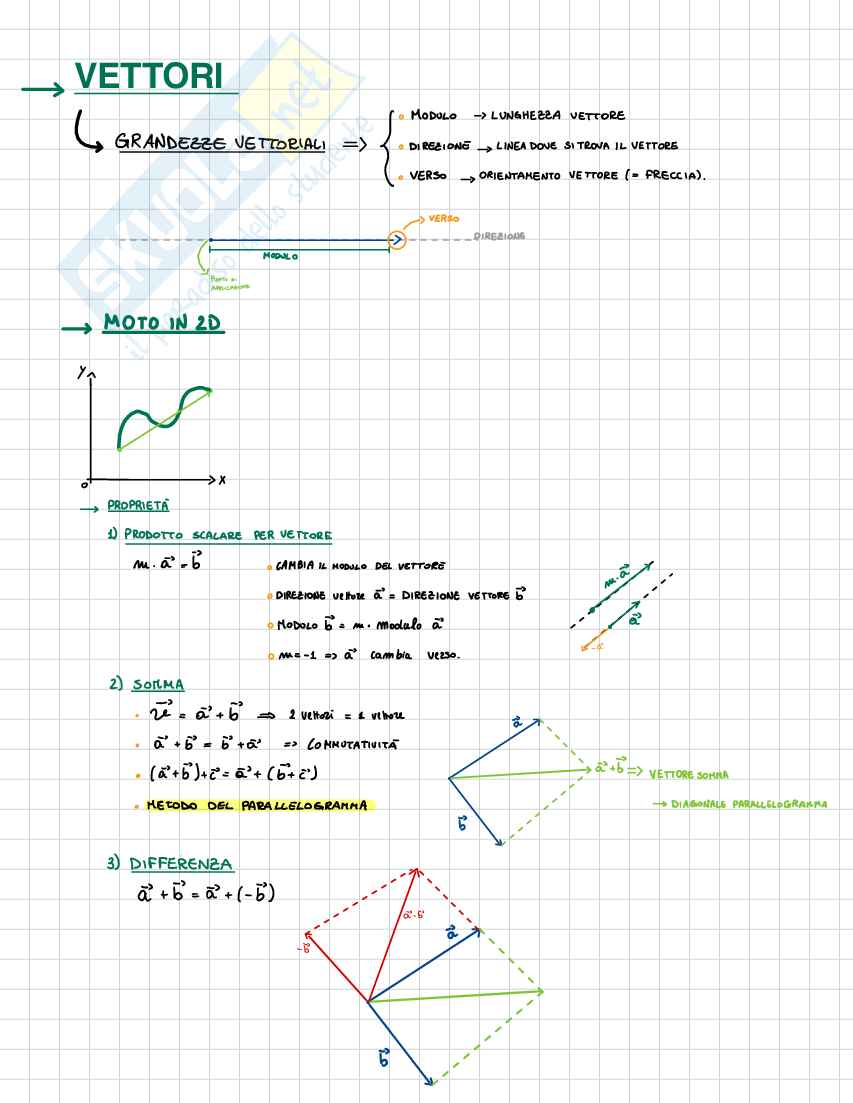 → VETTORI
GRANDEZZE VETTORIALI =>
• MODULO → LUNGHEZZA VETTORE
• DIREZIONE → LINEA DOVE SI TROVA IL VETTORE
• VERSO → ORIENTAMENTO VETTORE (= FRECCIA).
VERSO
DIREZIONE
MODULO
PUNTO DI
APPLICAZIONE
SKUOLA.net
il paradiso dello studente
→ MOTO IN 2D
Y
O
X
→ PROPRIETÀ
1) PRODOTTO SCALARE PER VETTORE
m · a⃗ = b⃗
• CAMBIA IL MODULO DEL VETTORE
• DIREZIONE vettore a⃗ = DIREZIONE VETTORE b⃗
• MODULO b⃗ = m · modulo a⃗
• m=-1 => a⃗ cambia verso.
m·a⃗
a⃗
-a⃗
2) SOMMA
• v⃗ = a⃗ + b⃗ => 2 vettori = 1 vettore
• a⃗ + b⃗ = b⃗ + a⃗ => COMMUTATIVITÀ
• (a⃗+b⃗)+c⃗ = a⃗ + (b⃗+c⃗)
• METODO DEL PARALLELOGRAMMA
a⃗
b⃗
a⃗+b⃗ => VETTORE SOMMA
→ DIAGONALE PARALLELOGRAMMA
3) DIFFERENZA
a⃗ + b⃗ = a⃗ + (-b⃗)
-b⃗
a⃗-b⃗
a⃗
b⃗